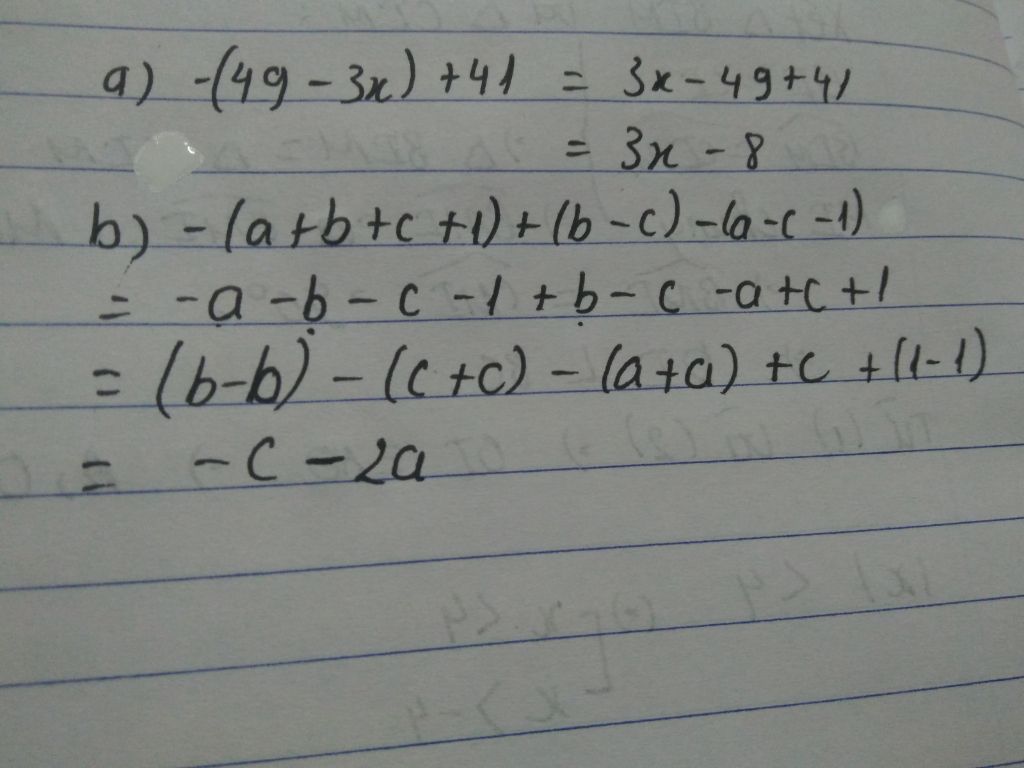 a) -(49 - 3x) + 41 = 3x - 49 + 41
= 3x - 8
b) -(a + b + c + 1) + (b - c) - (a - c - 1)
= -a - b - c - 1 + b - c - a + c + 1
= (b - b) - (c + c) - (a + a) + c + (1 - 1)
= - c - 2a